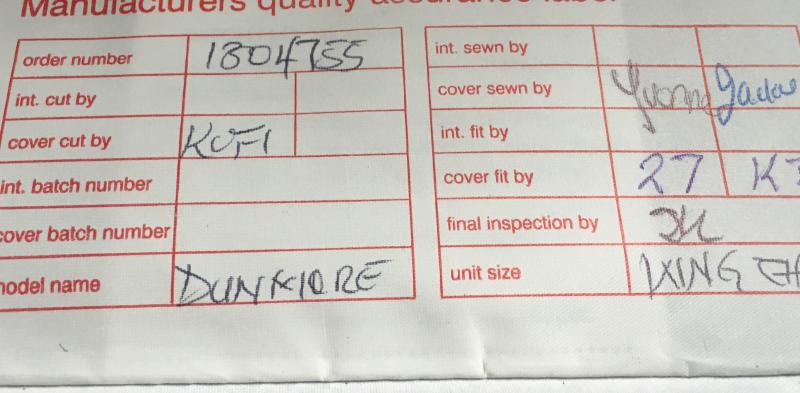 Manufacturers quality assurance label
order number 1804755
int. cut by
cover cut by KOFI
int. batch number
cover batch number
model name DUNKIRE
int. sewn by
cover sewn by Yvonne
int. fit by
cover fit by 27
final inspection by
unit size KING